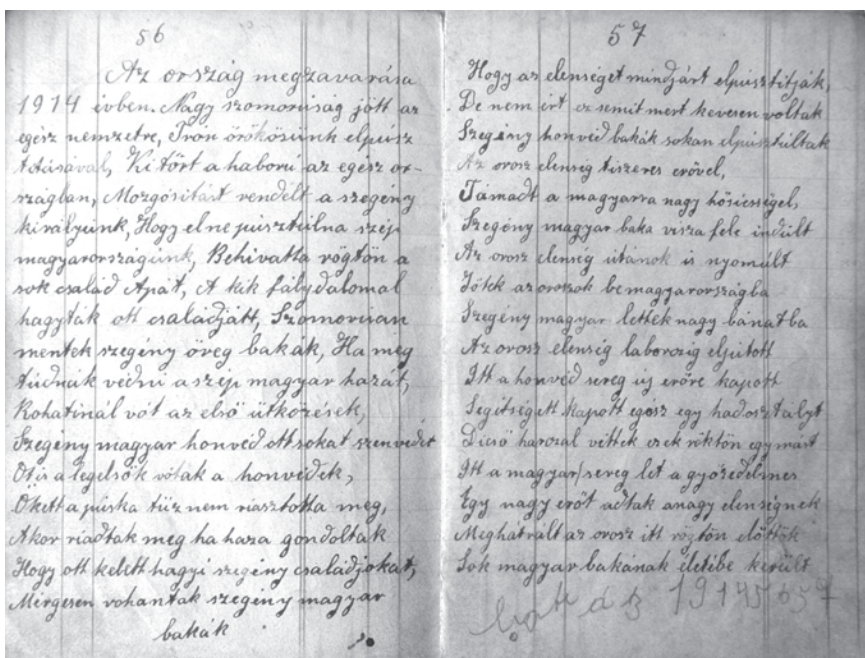 56
Az ország megzavarása
1914 évben. Nagy szomorúság jött az
egész nemzetre, Tron örökösünk elpusz
titásával, Ki tört a haború az egész or-
szágban, Mozgósitást rendelt a szegény
királyunk, Hogy el ne pusztúlna szép
magyarországunk, Behivatta rögtön a
sok család Apát, A kik fálydalomal
hagyták ott családjátt, Szomorúan
mentek szegény öreg bakák, Ha meg
túdnák védni a szép magyar hazát,
Rohatinál vót az első ütközések,
Szegény magyar honvéd ott sokat szenvedet
Ot is a legelsők vótak a honvédek,
Őkett a púska tűz nem riasztotta meg,
Akor riadtak meg ha haza gondoltak
Hogy ott kelett hagyi szegény családjokat,
Mérgesen rohantak szegény magyar
bakák
57
Hogy az elenséget mindjárt elpusztitják,
De nem ért ez semit mert kevesen voltak
Szegény honvéd bakák sokan elpusztúltak
Az orosz elenség tiszeres erővel,
Támadt a magyarra nagy hősiességel,
Szegény magyar baka visza fele indúlt
Az orosz elenség útánok is nyomúlt
Jöttek az oroszok be magyarországba
Szegény magyar lettek nagy bánatba
Az orosz elenség laborczig eljutott
Itt a honvéd sereg új erőre kapott
Segitségett kapott egész egy hadosztályt
Dicső harczal vették ezek röktön egymást
Itt a magyar sereg let a győzedelmes
Egy nagy erőt adtak a nagy elenségnek
Meghátrált az orosz itt rögtön előttök
Sok magyar bakának életébe került
1914 5 6 5 7